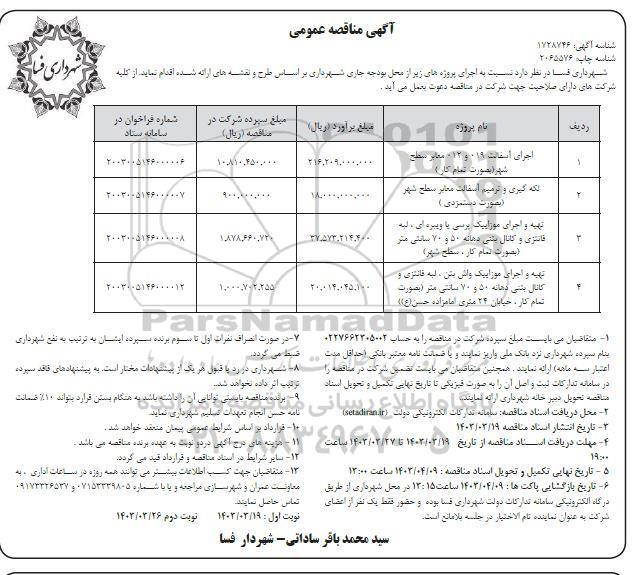 آگهی مناقصه عمومی
شهرداری فسا
شناسه آگهی: ۱۷۲۸۷۴۶
شناسه چاپ: ۲۰۶۵۵۷۶
شهرداری فسا در نظر دارد نسبت به اجرای پروژه های زیر از محل بودجه جاری شهرداری بر اساس طرح و نقشه های ارائه شده اقدام نماید. از کلیه
شرکت های دارای صلاحیت جهت شرکت در مناقصه دعوت بعمل می آید .
ردیف نام پروژه مبلغ برآورد (ریال) مبلغ سپرده شرکت در مناقصه (ریال) شماره فراخوان در سامانه ستاد
۱ اجرای آسفالت ۰۱۹ و ۰۱۲ معابر سطح شهر(بصورت تمام کار) ۲۱۶,۲۰۹,۰۰۰,۰۰۰ ۱۰,۸۱۰,۴۵۰,۰۰۰ ۲۰۰۳۰۰۵۱۴۶۰۰۰۰۰۶
۲ لکه گیری و ترمیم آسفالت معابر سطح شهر (بصورت دستمزدی ) ۱۸,۰۰۰,۰۰۰,۰۰۰ ۹۰۰,۰۰۰,۰۰۰ ۲۰۰۳۰۰۵۱۴۶۰۰۰۰۰۷
۳ تهیه و اجرای موزاییک پرسی یا ویبره ای ، لبه فانتزی و کانال بتنی دهانه ۵۰ و ۷۰ سانتی متر (بصورت تمام کار ، سطح شهر) ۳۷,۵۷۳,۲۱۴,۴۰۰ ۱,۸۷۸,۶۶۰,۷۲۰ ۲۰۰۳۰۰۵۱۴۶۰۰۰۰۰۸
۴ تهیه و اجرای موزاییک واش بتن ، لبه فانتزی و کانال بتنی دهانه ۵۰ و ۷۰ سانتی متر (بصورت تمام کار ، خیابان ۲۴ متری امامزاده حسن(ع)) ۲۰,۰۱۴,۰۴۵,۱۰۰ ۱,۰۰۰,۷۰۲,۲۵۵ ۲۰۰۳۰۰۵۱۴۶۰۰۰۰۱۲
۱- متقاضیان می بایست مبلغ سپرده شرکت در مناقصه را به حساب ۰۲۲۷۶۶۲۳۰۵۰۰۲
بنام سپرده شهرداری نزد بانک ملی واریز نمایند و یا ضمانت نامه معتبر بانکی (حداقل مدت
اعتبار سه ماهه) ارائه نمایند . همچنین متقاضیان می بایست تضمین شرکت در مناقصه را
در سامانه تدارکات ثبت و اصل آن را به صورت فیزیکی تا تاریخ نهایی تکمیل و تحویل اسناد
مناقصه تحویل دبیر خانه شهرداری ارائه نمایند.
۲- محل دریافت اسناد مناقصه: سامانه تدارکات الکترونیکی دولت (setadiran.ir)
۳- تاریخ انتشار اسناد مناقصه ۱۴۰۳/۰۳/۱۹
۴- مهلت دریافت اسناد مناقصه از تاریخ ۱۴۰۳/۰۳/۱۹ تا ۱۴۰۳/۰۳/۲۷ ساعت
۱۹:۰۰
۵ - تاریخ نهایی تکمیل و تحویل اسناد مناقصه : ۱۴۰۳/۰۴/۰۹ ساعت ۱۳:۰۰
۶- تاریخ بازگشایی پاکت ها : ۱۴۰۳/۰۴/۰۹ ساعت ۱۳:۱۵ در محل شهرداری از طریق
درگاه الکترونیکی سامانه تدارکات دولت شهرداری فسا بوده و حضور فقط یک نفر از اعضای
شرکت به عنوان نماینده تام الاختیار در جلسه بلامانع است.
۷-در صورت انصراف نفرات اول تا سوم برنده سپرده ایشان به ترتیب به نفع شهرداری
ضبط می گردد.
۸- شهرداری در رد یا قبول هر یک از پیشنهادات مختار است. به پیشنهادهای فاقد سپرده
ترتیب اثر داده نخواهد شد.
۹- برنده مناقصه بایستی توانایی آن را داشته باشد به هنگام بستن قرارداد بتواند ۱۰٪ ضمانت
نامه حسن انجام تعهدات تسلیم شهرداری نماید.
۱۰- قرارداد بر اساس شرایط عمومی پیمان منعقد خواهد شد .
۱۱ - هزینه های درج آگهی در دو نوبت به عهده برنده مناقصه می باشد .
۱۲- سایر شرایط در اسناد مناقصه و قرارداد قید می گردد.
۱۳- متقاضیان جهت کسب اطلاعات بیشتر می توانند همه روزه در ساعات اداری ، به
معاونت عمران و شهرسازی مراجعه و یا با شماره ۰۷۱۵۳۳۳۹۸۰۵ و ۰۹۱۷۳۳۲۶۵۳۷
تماس حاصل نمایند.
نوبت اول : ۱۴۰۳/۰۳/۱۹ نوبت دوم ۱۴۰۳/۰۳/۲۶
سید محمد باقر ساداتی- شهردار فسا
ParsNamadData